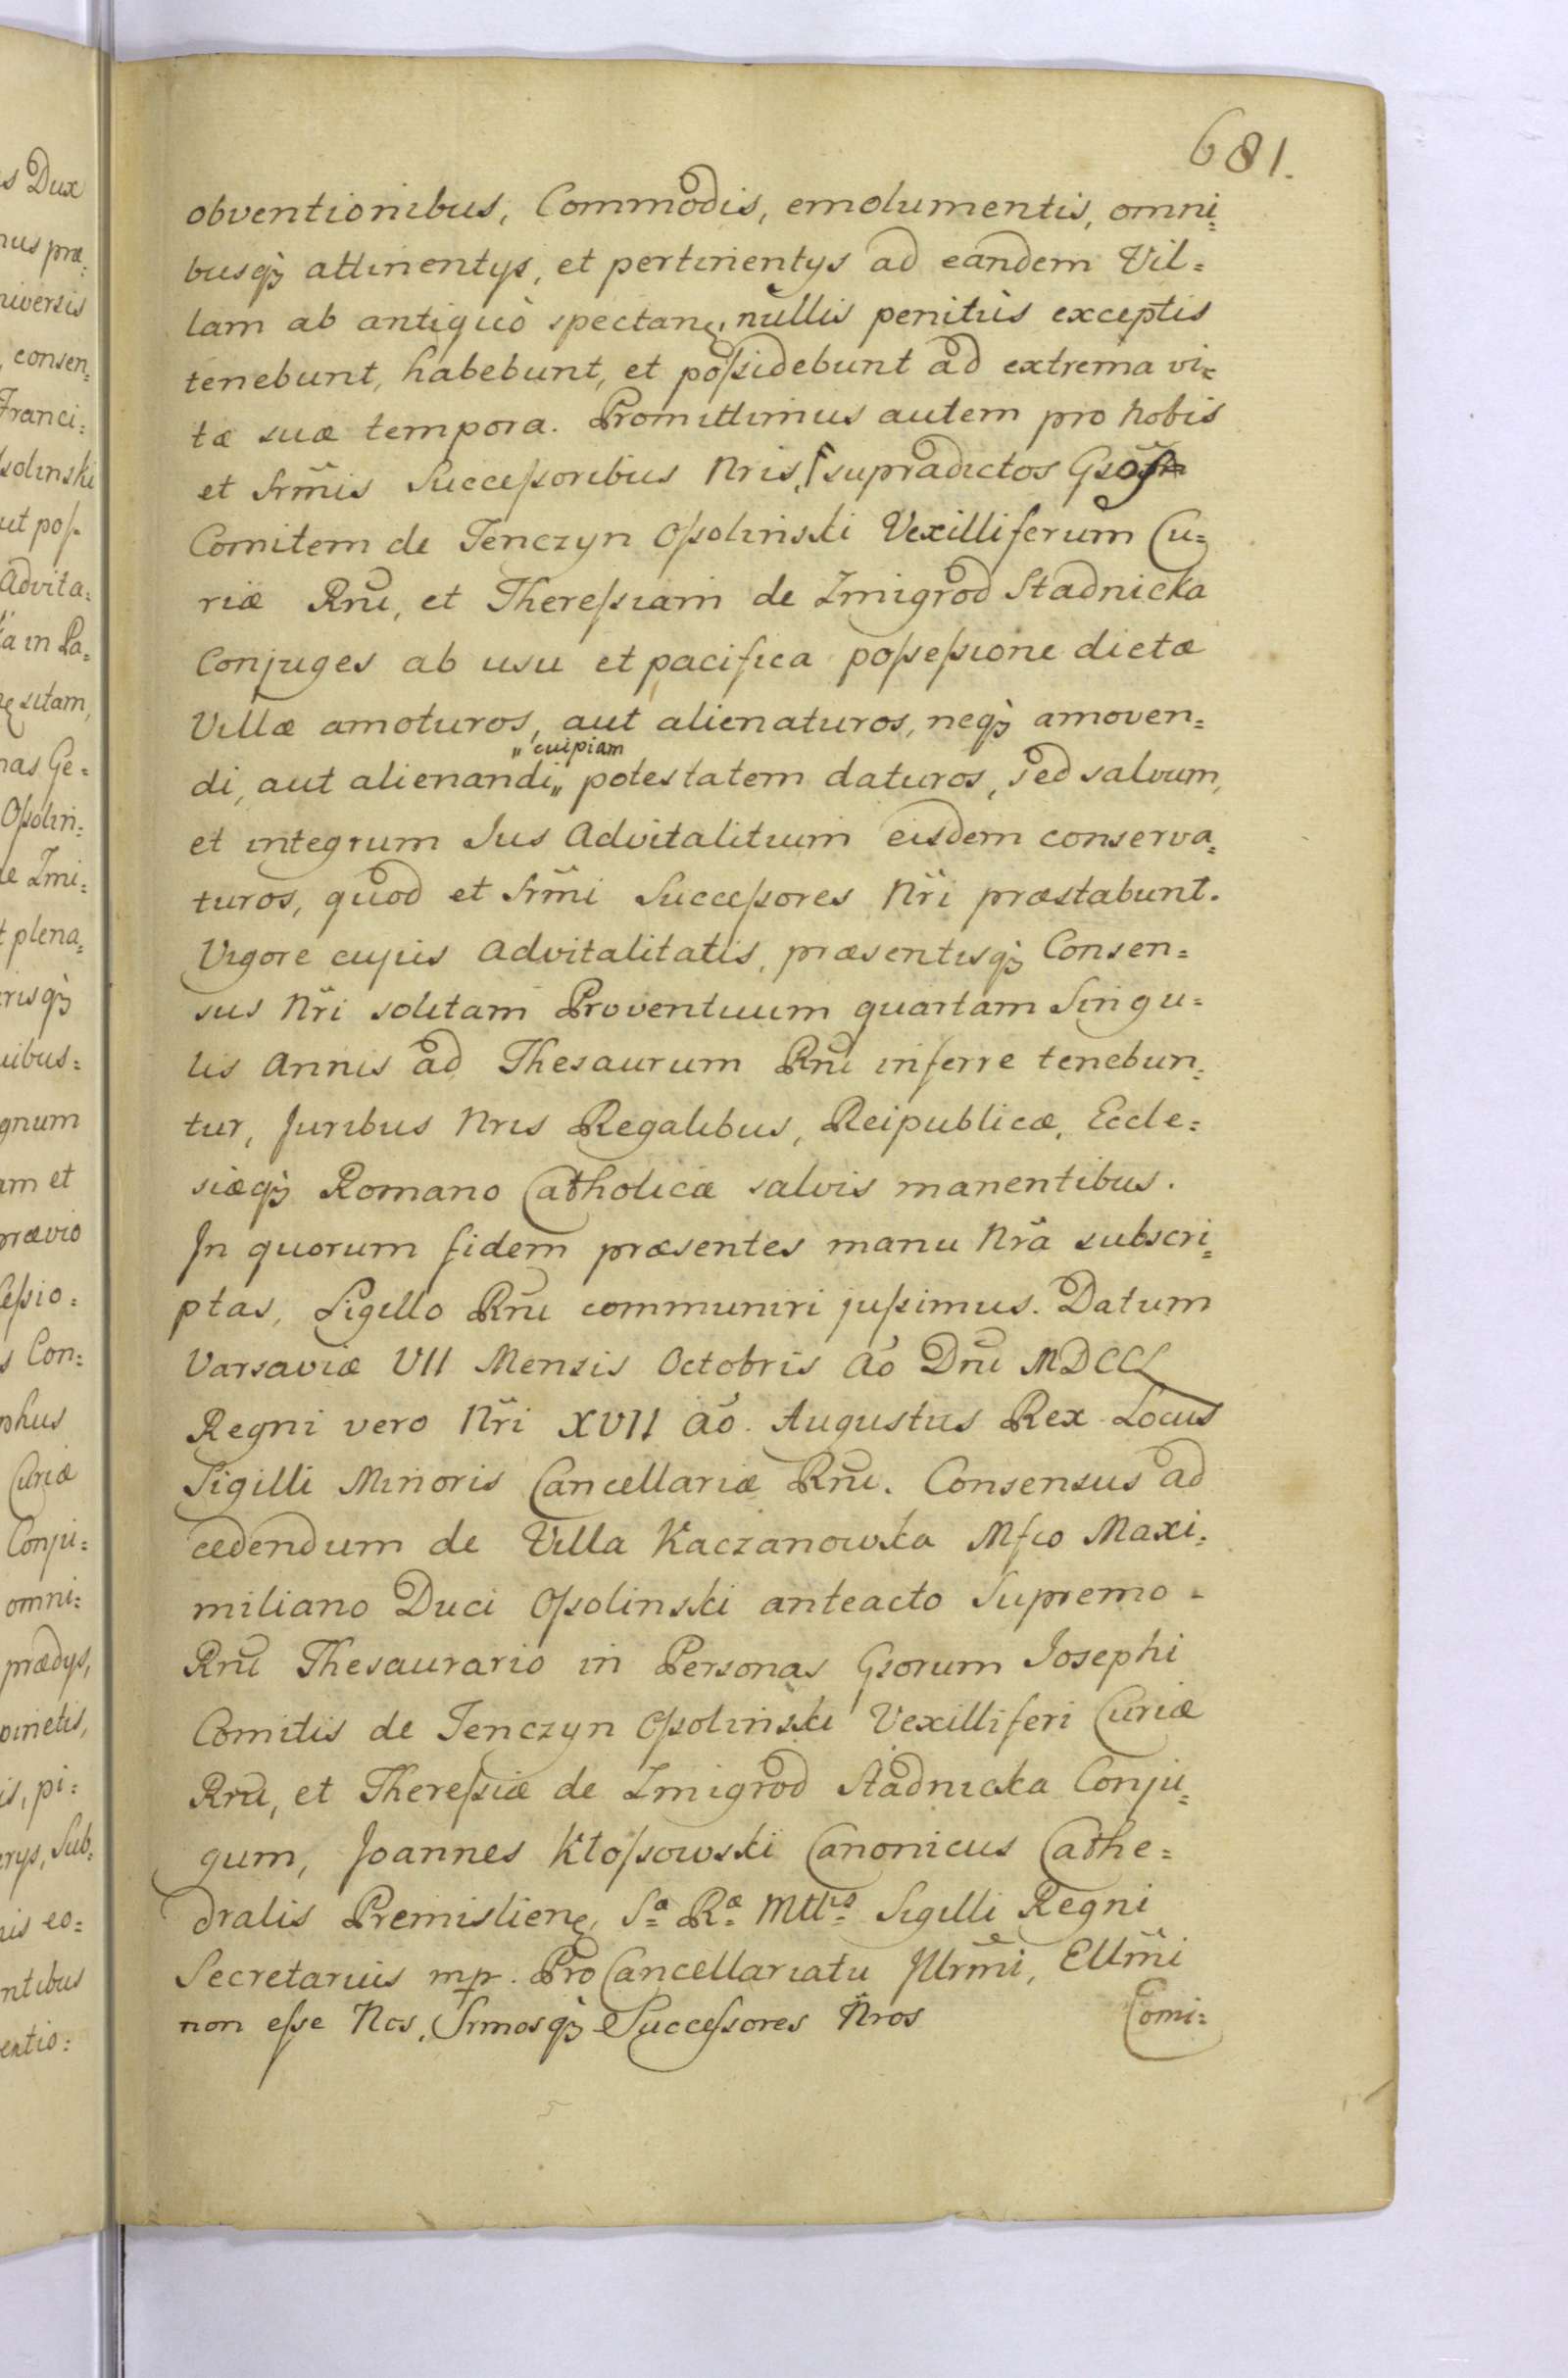 681.
obventionibus, Commodis, emolumentis, omni=
busq3 attinentys, et pertinentys ad eandem Vil=
lam ab antiquò spectanę, nullis penitùs exceptis
tenebunt, habebunt, et poſsidebunt ad extrema vi=
tæ suæ tempora. Promittimus autem pro Nobis
et Srm̃is Succeſsoribus Nris, ſ supradictos Gsos
Comitem de Tenczyn Oſsoliński Vexilliferum Cu=
riæ Rnĩ, et Thereſsiam de Zmigrod Stadnicka
Conjuges ab usu et pacifica poſseſsione dictæ
Villæ amoturos, aut alienaturos, neq3 amoven=
" cuipiam
di, aut alienandi,, potestatem daturos, sed salvum,
et integrum Jus Advitalitium eisdem conserva=
turos, quod et Srm̃i Succeſsores Nr̃i præstabunt.
Vigore cujus Advitalitatis, præsentisq3 Consen=
sus Nr̃i solitam Proventuum quartam Singu=
lis Annis ad Thesaurum Rnĩ inferre tenebun=
tur, Juribus Nris Regalibus, Reipublicæ, Eccle=
siæq3 Romano Catholicæ salvis manentibus.
In quorum fidem præsentes manu Nrã subscri=
ptas, Sigillo Rnĩ communiri juſsimus. Datum
Varsaviæ VII Mensis Octobris Aõ Dnĩ MDCCL
Regni vero Nr̃i XVII aõ. Augustus Rex Locus
Sigilli Minoris Cancellariæ Rnĩ. Consensus ad
cedendum de Villa Kaczanowska Mfco Maxi=
miliano Duci Oſsolinski anteacto Supremo -
Rnĩ Thesaurario in Personas Gsorum Josephi
Comitis de Tenczyn Oſsoliński Vexilliferi Curiæ
Rnĩ, et Thereſsiæ de Zmigrod Stadnicka Conju=
gum, Joannes Kłoſsowski Canonicus Cathe=
dralis Premislienę, Sæ Ræ Mttis Sigilli Regni
Secretarius mp. Pro Cancellariatu Jllrm̃i, Ellm̃i
non eſse Nos, Srmosq3 Succeſsores Nros
Comi=
s Dux
nus præ=
niversis
, consen=
Franci=
ſsolinski
ut poſ=
Advita=
a in Pa=
ę sitam,
nas Ge=
Oſsolin=
de Zmi=
t plena=
risq3
uibus=
gnum
am et
prævio
ceſsio=
s Con=
phus
Curiæ
Conju=
omni=
prædys,
pinetis,
is, pi=
rys, Sub=
is eo=
ntibus
entio=